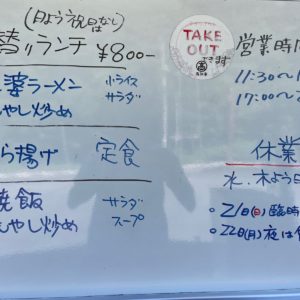 (日よう祝日はなし)
替リランチ ¥800-
婆ラーメン 小ライス
サラダ
やし炒め
ら揚げ 定食
焼飯 サラダ
やし炒め スープ
TAKE
OUT
できます
営業時
11:30〜
17:00〜
休業
水、木よう日
21(日)臨時
22日(月)夜は